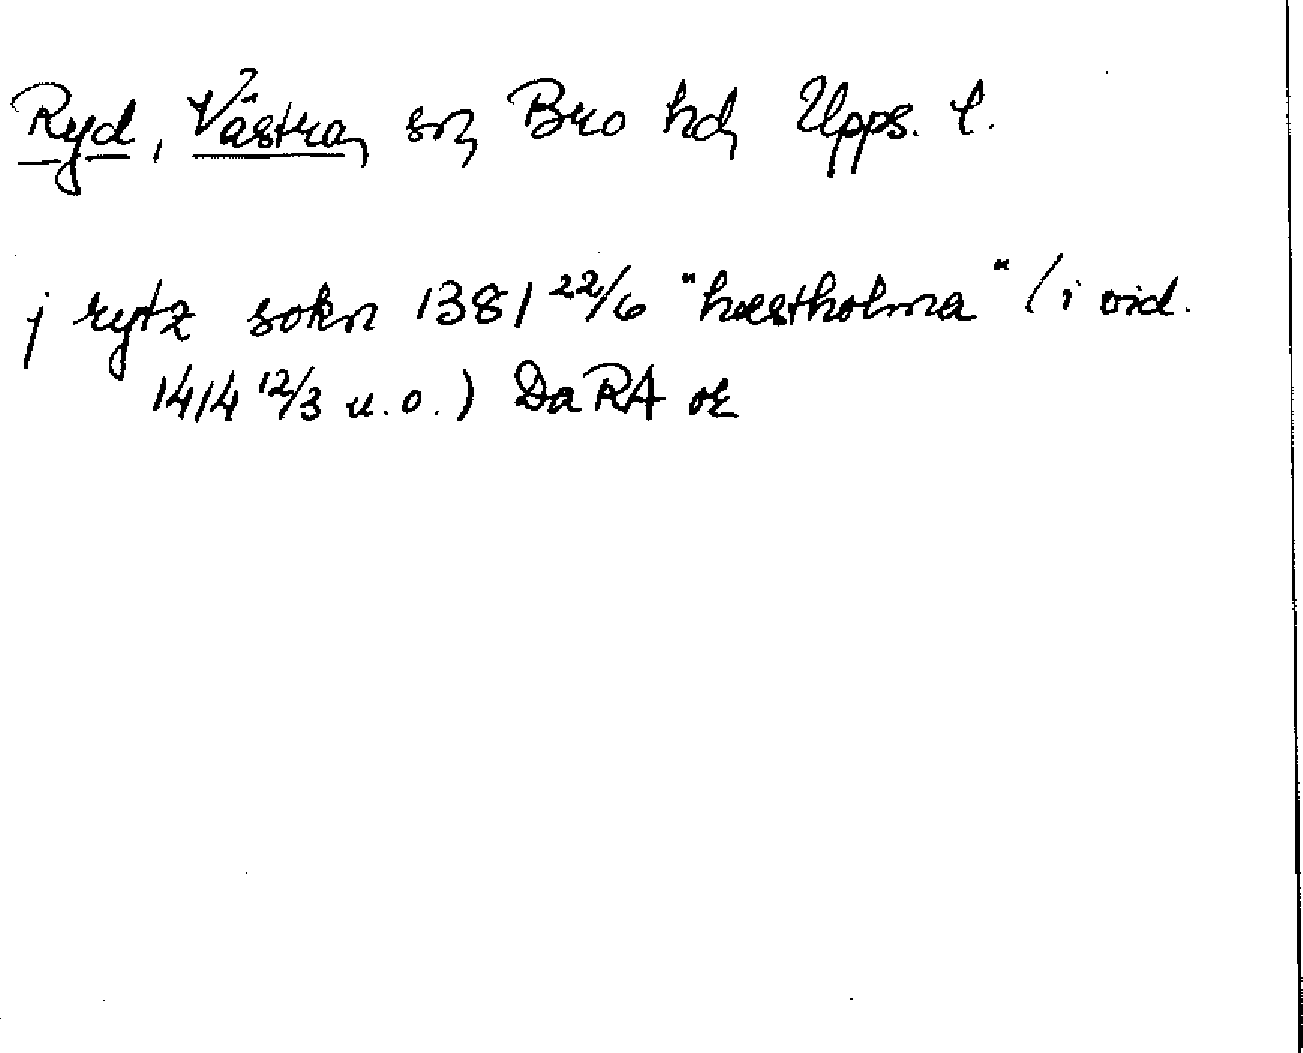 Ryd, Västra, sn, Bro hd, Upps. l.
j rytz sokn 1381 22/6 "hæstholma" (i vid.
1414 12/3 u.o.) Da RA or